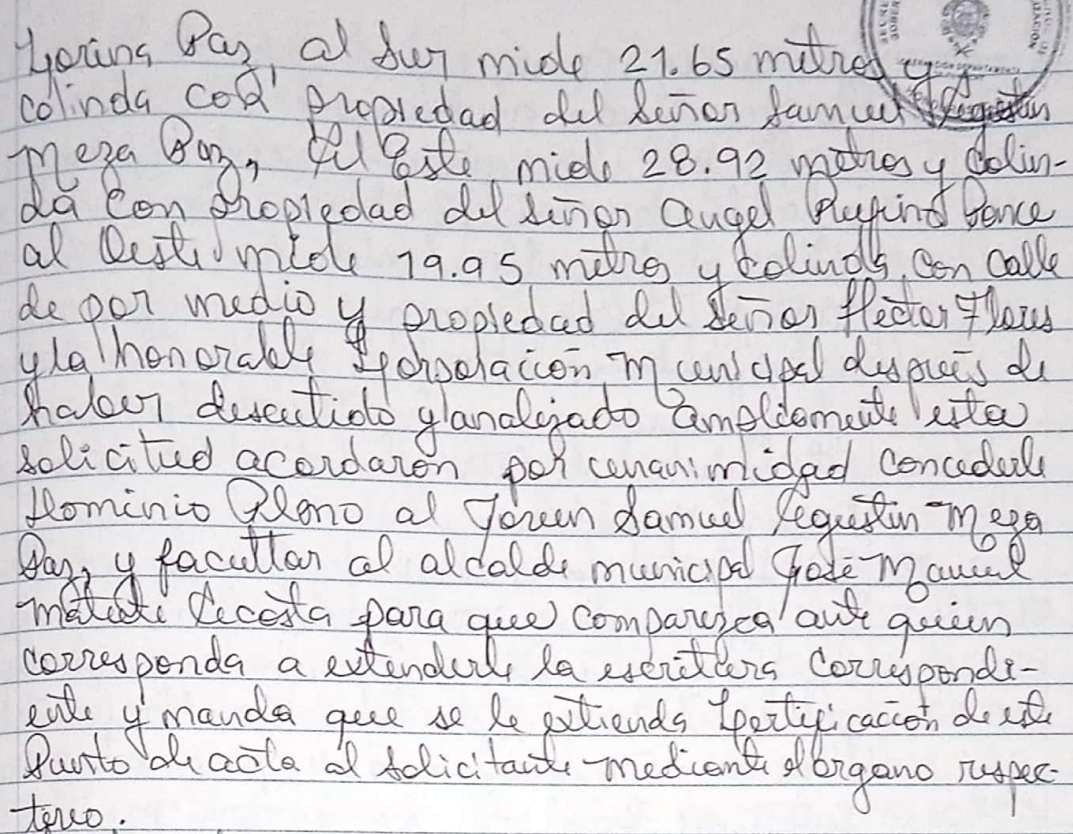 Yorina Paz, al Sur mide 21.65 metros y
colinda con propiedad del señor Samuel Agustin
Meza Paz, Al Este mide 28.92 metros y Colin-
da Con Propiedad del señor Angel Rufino Ponce
al Oeste mide 19.95 metros y Colinda Con Calle
de por medio y propiedad del Señor Hector Flores
y la honorable Corporación Municipal después de
haber descutido y analizado Ampliamente esta
solicitud acordaron por unanimidad concederle
Dominio Pleno al Joven Samuel Agustin Meza
Paz, y facultar al alcalde municipal José Manuel
Matute para que comparezca ante quien
corresponda a extenderle la escritura Correspondi-
ente y manda que se le extienda Certificación de este
Punto de acta al solicitante mediante el organo respec-
tivo.